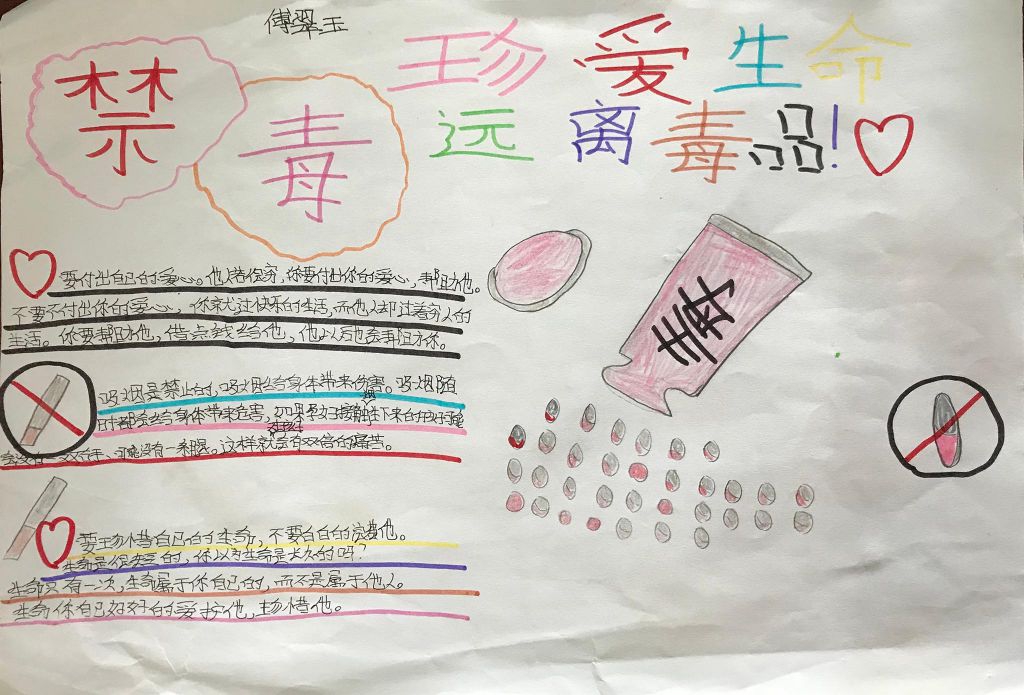 傅翠玉
禁毒
珍爱生命
远离毒品!
毒
要付出自己的爱心。他人若很穷,你要付出你的爱心,帮助他。
不要不付出你的爱心,你就过快乐的生活,而他人却过着穷人的
生活。你要帮助他,借点钱给他,他以后也会帮助你。
吸烟是禁止的,吸烟给身体带来伤害。吸烟随
时都会给身体带来危害,如果孕妇接触生下来的孩子可能
会没有一双手、可能没有一条腿。这样就会有双倍的痛苦。
要珍惜自己的生命,不要白白的浪费他。
生命是很宝贵的,你以为生命是永久的吗?
生命只有一次,生命属于你自己的,而不是属于他人。
生命你自己好好的爱护他,珍惜他。